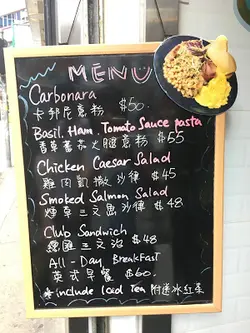 MENU
Carbonara
卡邦尼意粉 $50.
Basil. Ham. Tomato Sauce pasta
香草蕃茄火腿意粉 $55
Chicken Caesar Salad
雞肉凱撒沙律 $45
Smoked Salmon Salad
煙草三文魚沙律 $48
Club Sandwich
三文治 $48
All-Day Breakfast
英式早餐 $60.
*include Iced Tea 附送冰紅茶